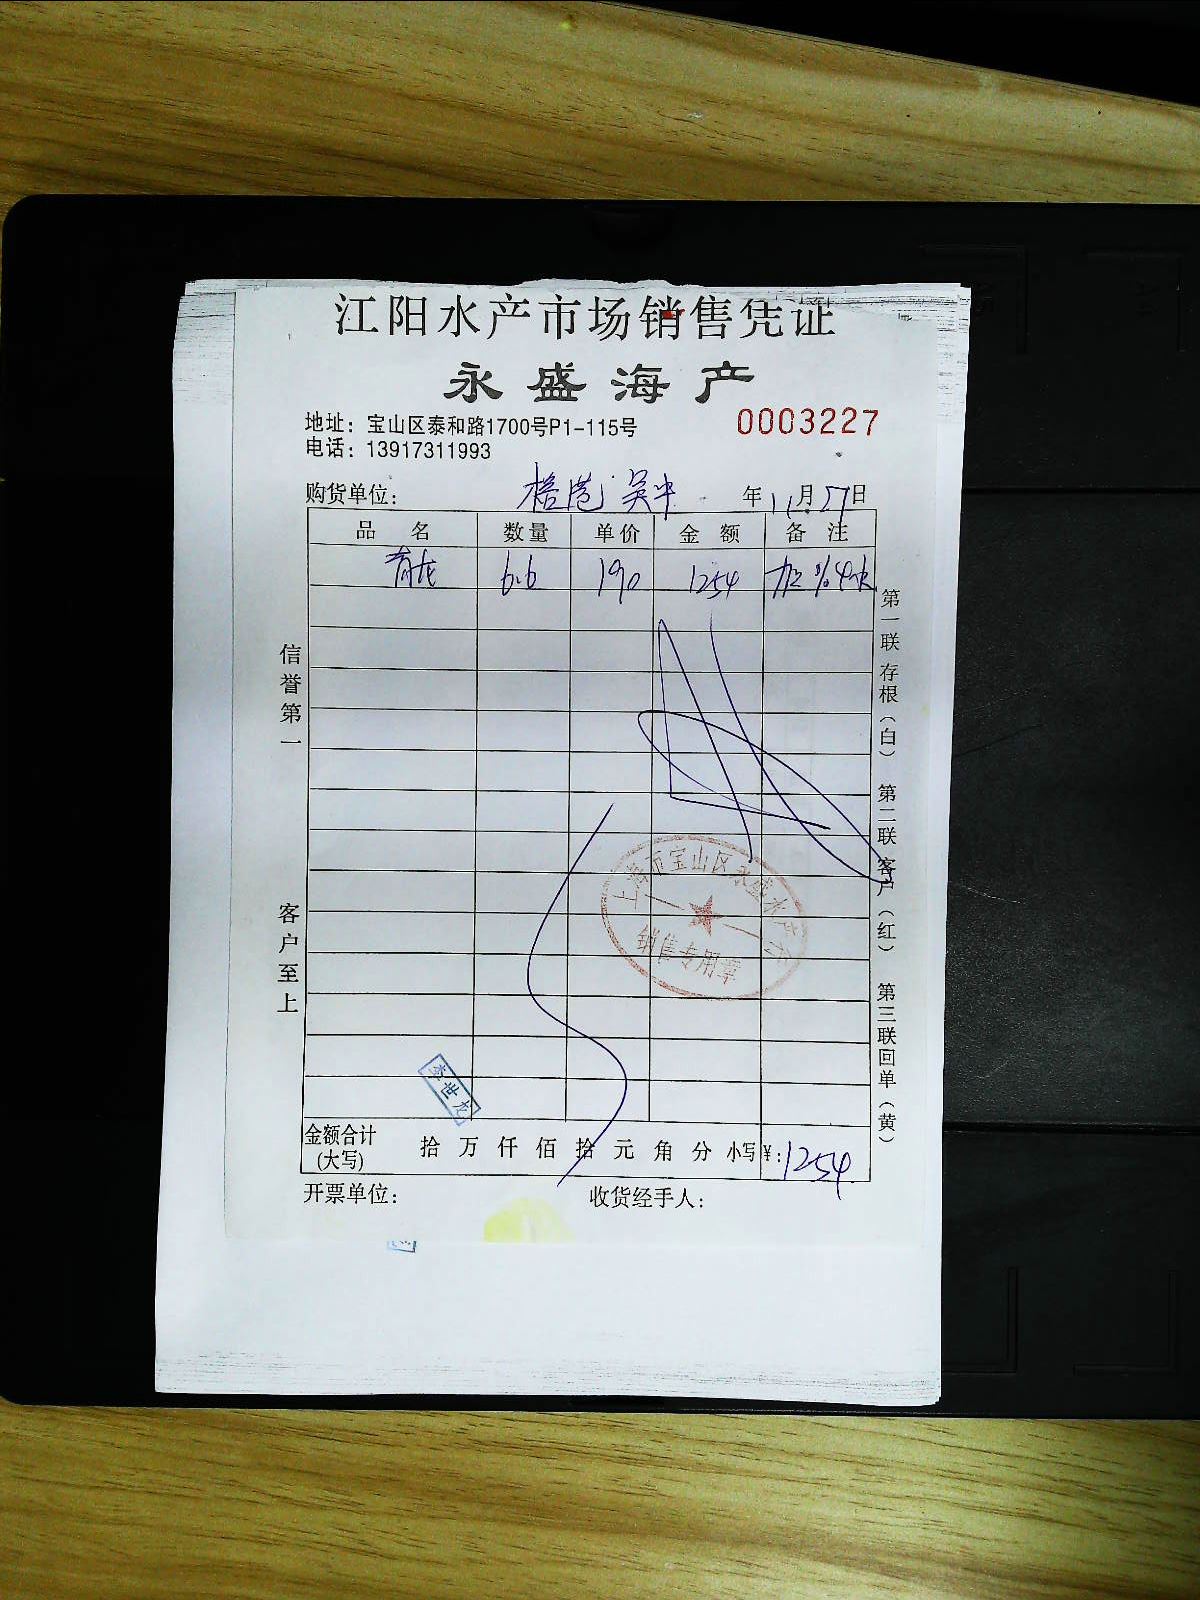 江阳水产市场销售凭证
永盛海产
地址：宝山区泰和路1700号P1-115号
0003227
电话：13917311993
购货单位： 吴中 年 11月27日
品名 数量 单价 金额 备注
青龙 6.6 190 1254 加%4水
信誉第一
客户至上
第一联存根（白） 第二联客户（红） 第三联回单（黄）
上海市宝山区永盛水产行
销售专用章
李世龙
金额合计(大写) 拾 万 仟 佰 拾 元 角 分 小写¥：1254
开票单位： 收货经手人：